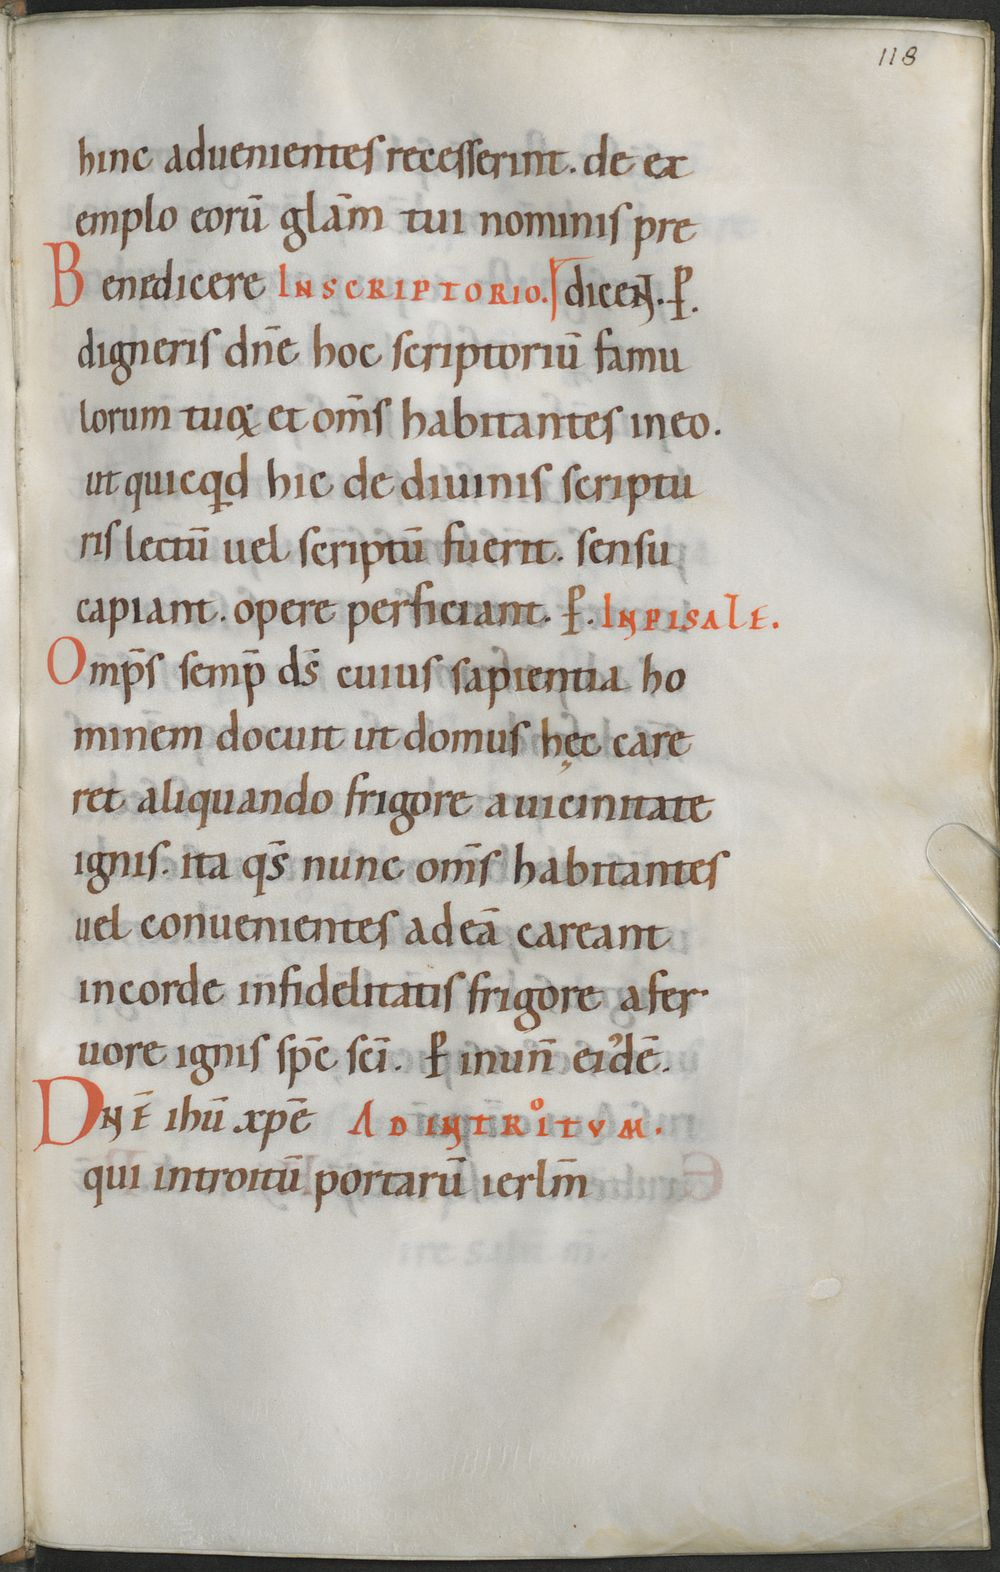 118
hinc aduenientes recesserint. de ex
emplo eorū glām tui nominis pre
Benedicere INSCRIPTORIO. dicen̄. ꝑ.
digneris dn̄e hoc scriptoriū famu
lorum tuoꝝ et om̄s habitantes in eo.
ut quicqd hic de diuinis scriptu
ris lectū uel scriptū fuerit. sensu
capiant. opere perficiant. ꝑ. INPISALE.
Omp̄s semp̄ ds̄ cuius sapientia ho
minem docuit ut domus hęc care
ret aliquando frigore a uicinitate
ignis. ita qs̄ nunc om̄s habitantes
uel conuenientes ad eā careant
in corde infidelitatis frigore a fer
uore ignis sp̄c sc̄i. ꝑ in un̄ eiꝰdē.
DN̄E ihū xpē AD INTROITVM.
qui introitū portarū ierlm̄